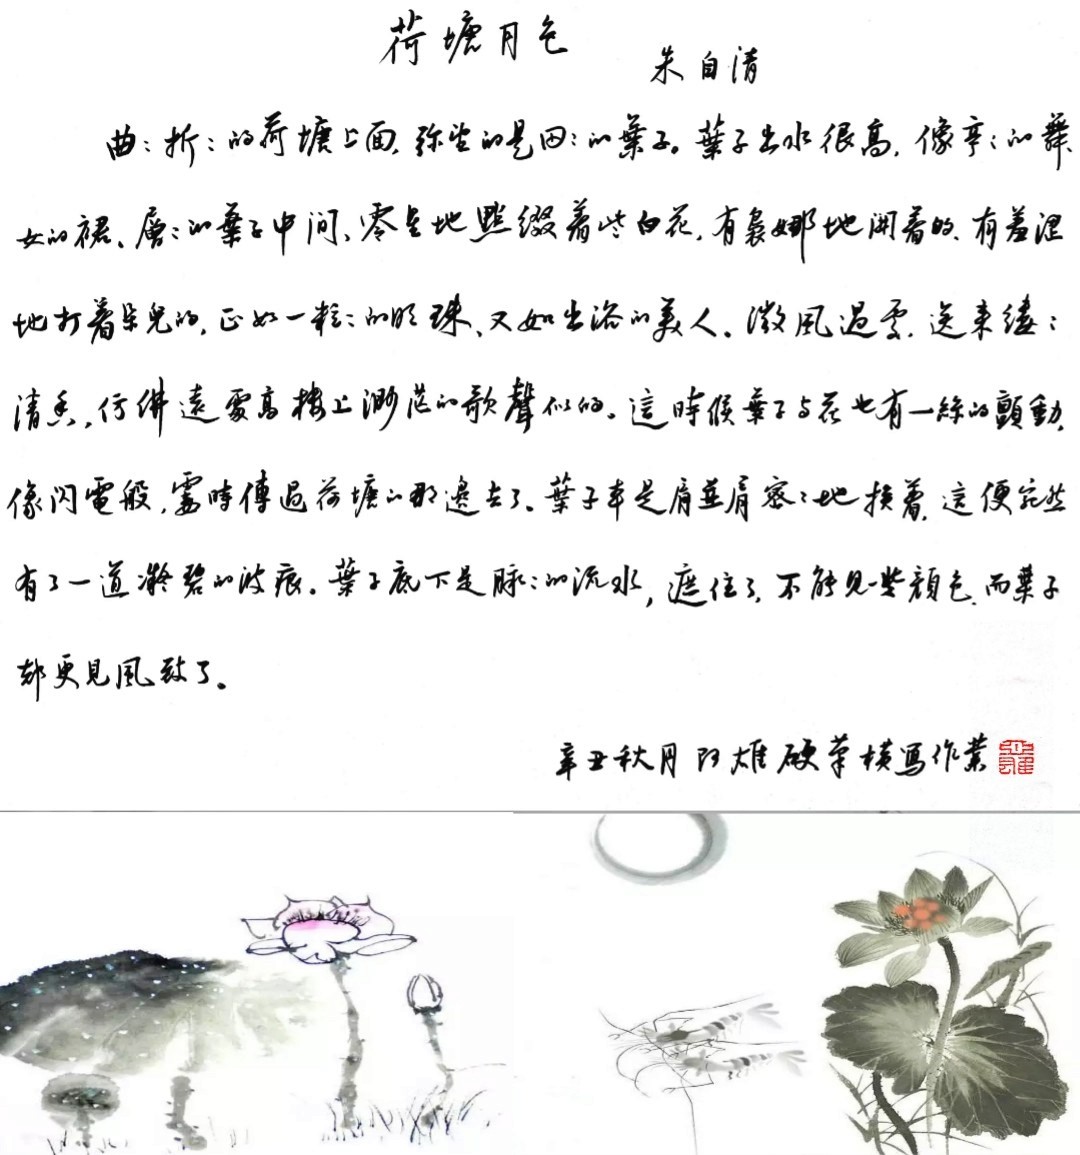 荷塘月色
朱自清
曲：折：的荷塘上面，弥望的是田：的葉子。葉子出水很高，像亭：的舞
女的裙、層：的葉子中间、零星地點缀着些白花，有裊娜地開着的、有羞涩
地打着朵兒的，正如一粒：的明珠、又如出浴的美人。微風過處，送来縷：
清香，仿佛遠處高楼上渺茫的歌聲似的。這時候葉子与花也有一絲的顫動，
像闪電般，霎時傳過荷塘的那邊去了。葉子本是肩並肩密：地挨着，這便宛然
有了一道凝碧的波痕。葉子底下是脉：的流水，遮住了，不能見一些顏色，而葉子
却更見風致了。
辛丑秋月阿雄硬筆横寫作業